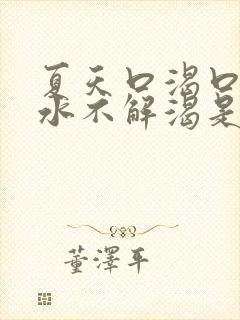 夏天口渴口
水不解渴是
董泽平